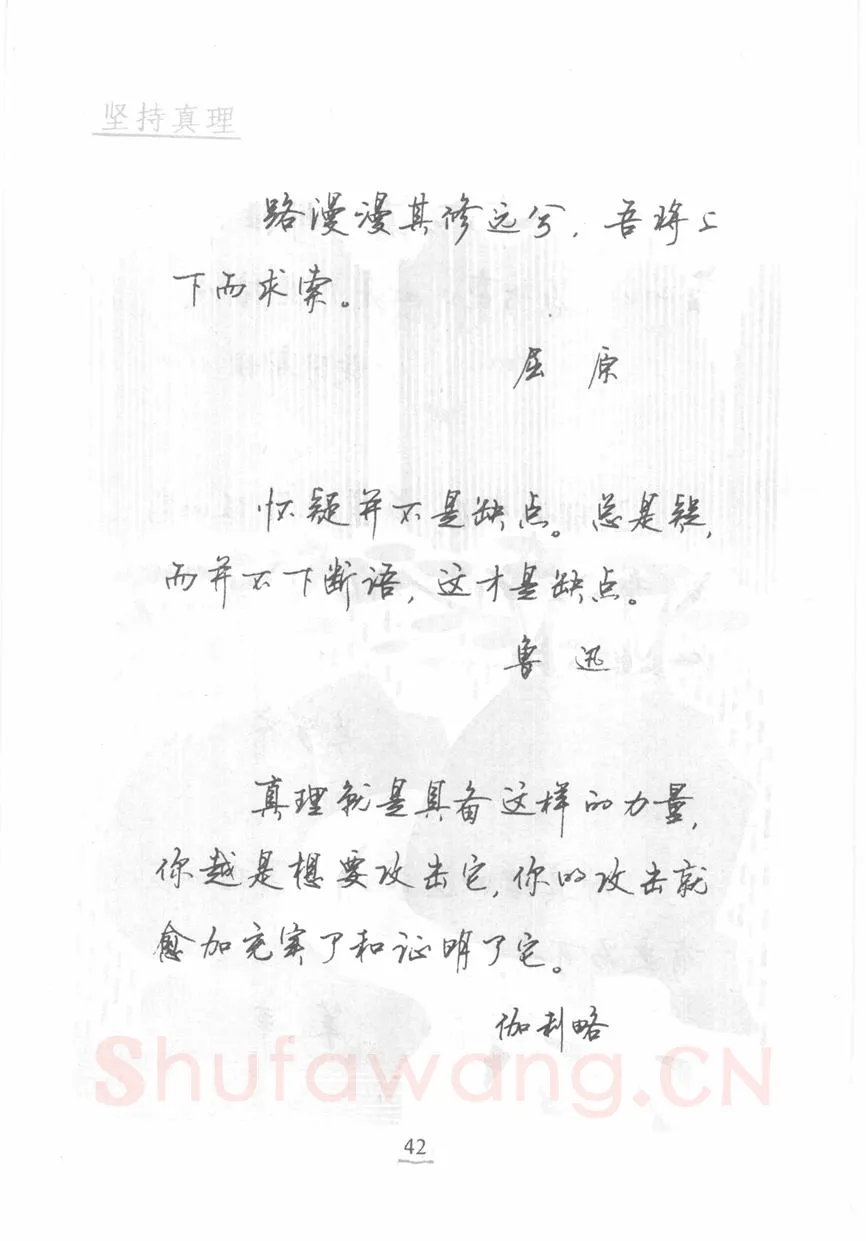 坚持真理
路漫漫其修远兮，吾将上
下而求索。
屈 原
怀疑并不是缺点。总是疑，
而并不下断语，这才是缺点。
鲁 迅
真理就是具备这样的力量，
你越是想要攻击它，你的攻击就
愈加充实了和证明了它。
伽利略
Shufawang.CN
42